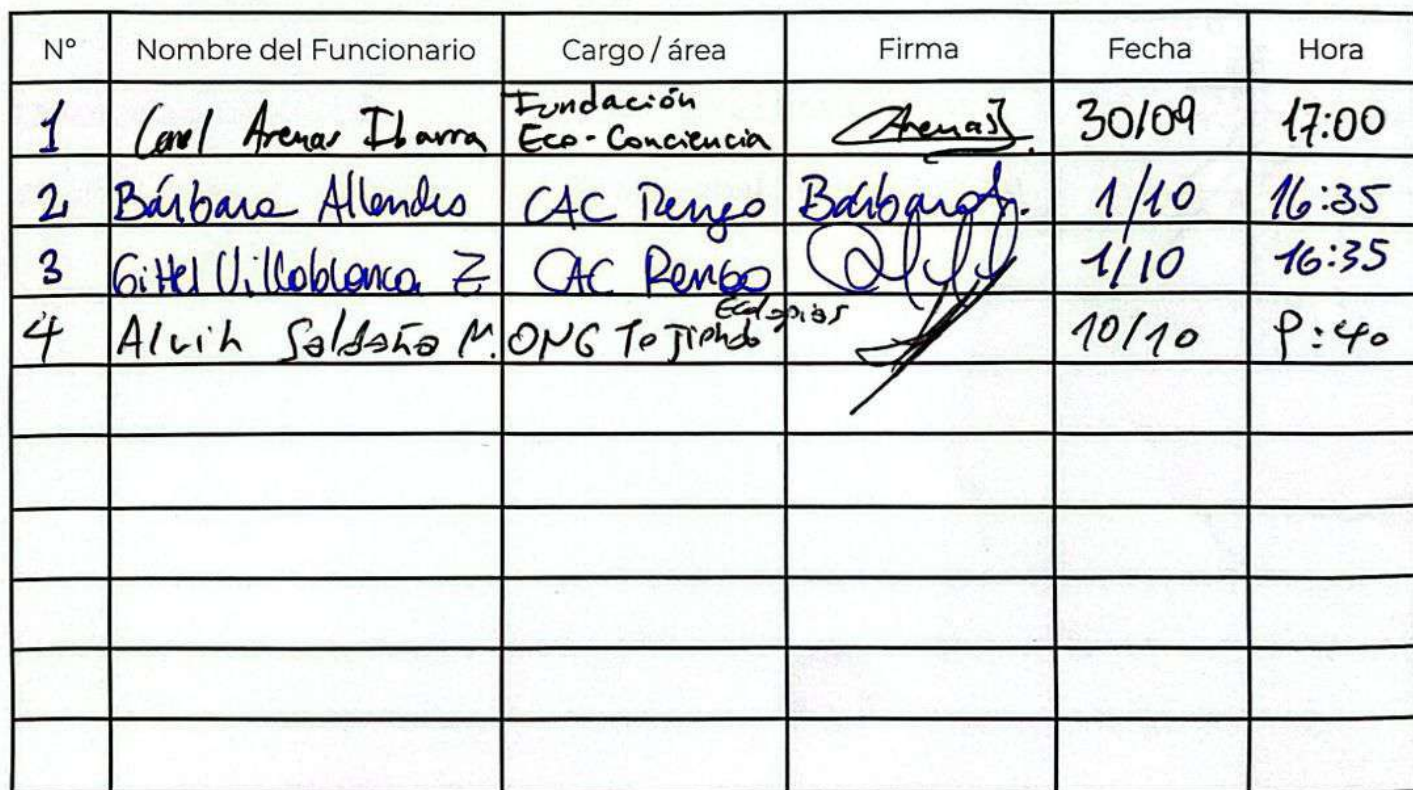 N° Nombre del Funcionario Cargo / área Firma Fecha Hora
1 Arenas Ibarra Fundación Eco-Conciencia Arenas 30/09 17:00
2 Bárbara Allendes CAC Rengo Bárbara A. 1/10 16:35
3 Gittel Villablanca Z CAC Rengo 1/10 16:35
4 Alvin Saldaña M. ONG Tejiendo Ecologías 10/10 9:40